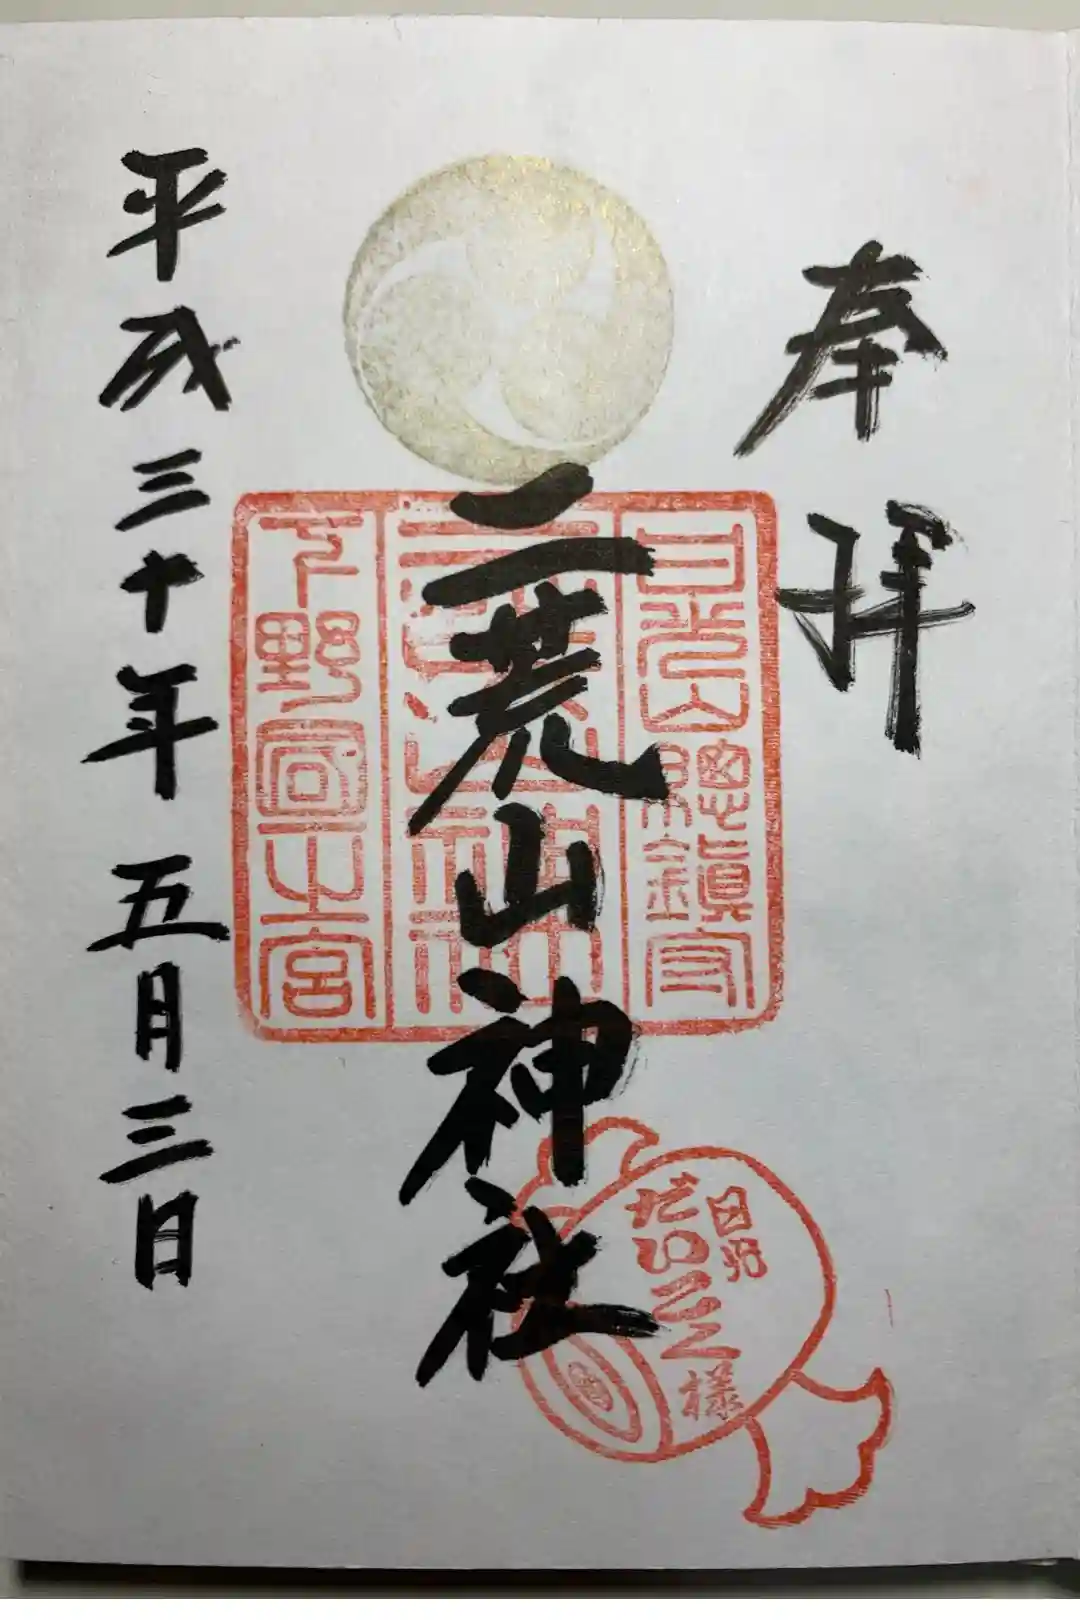 奉拝
日光山總鎮守
二荒山神社
下野國一之宮
二荒山神社
日光
だいこく様
平成三十年五月三日